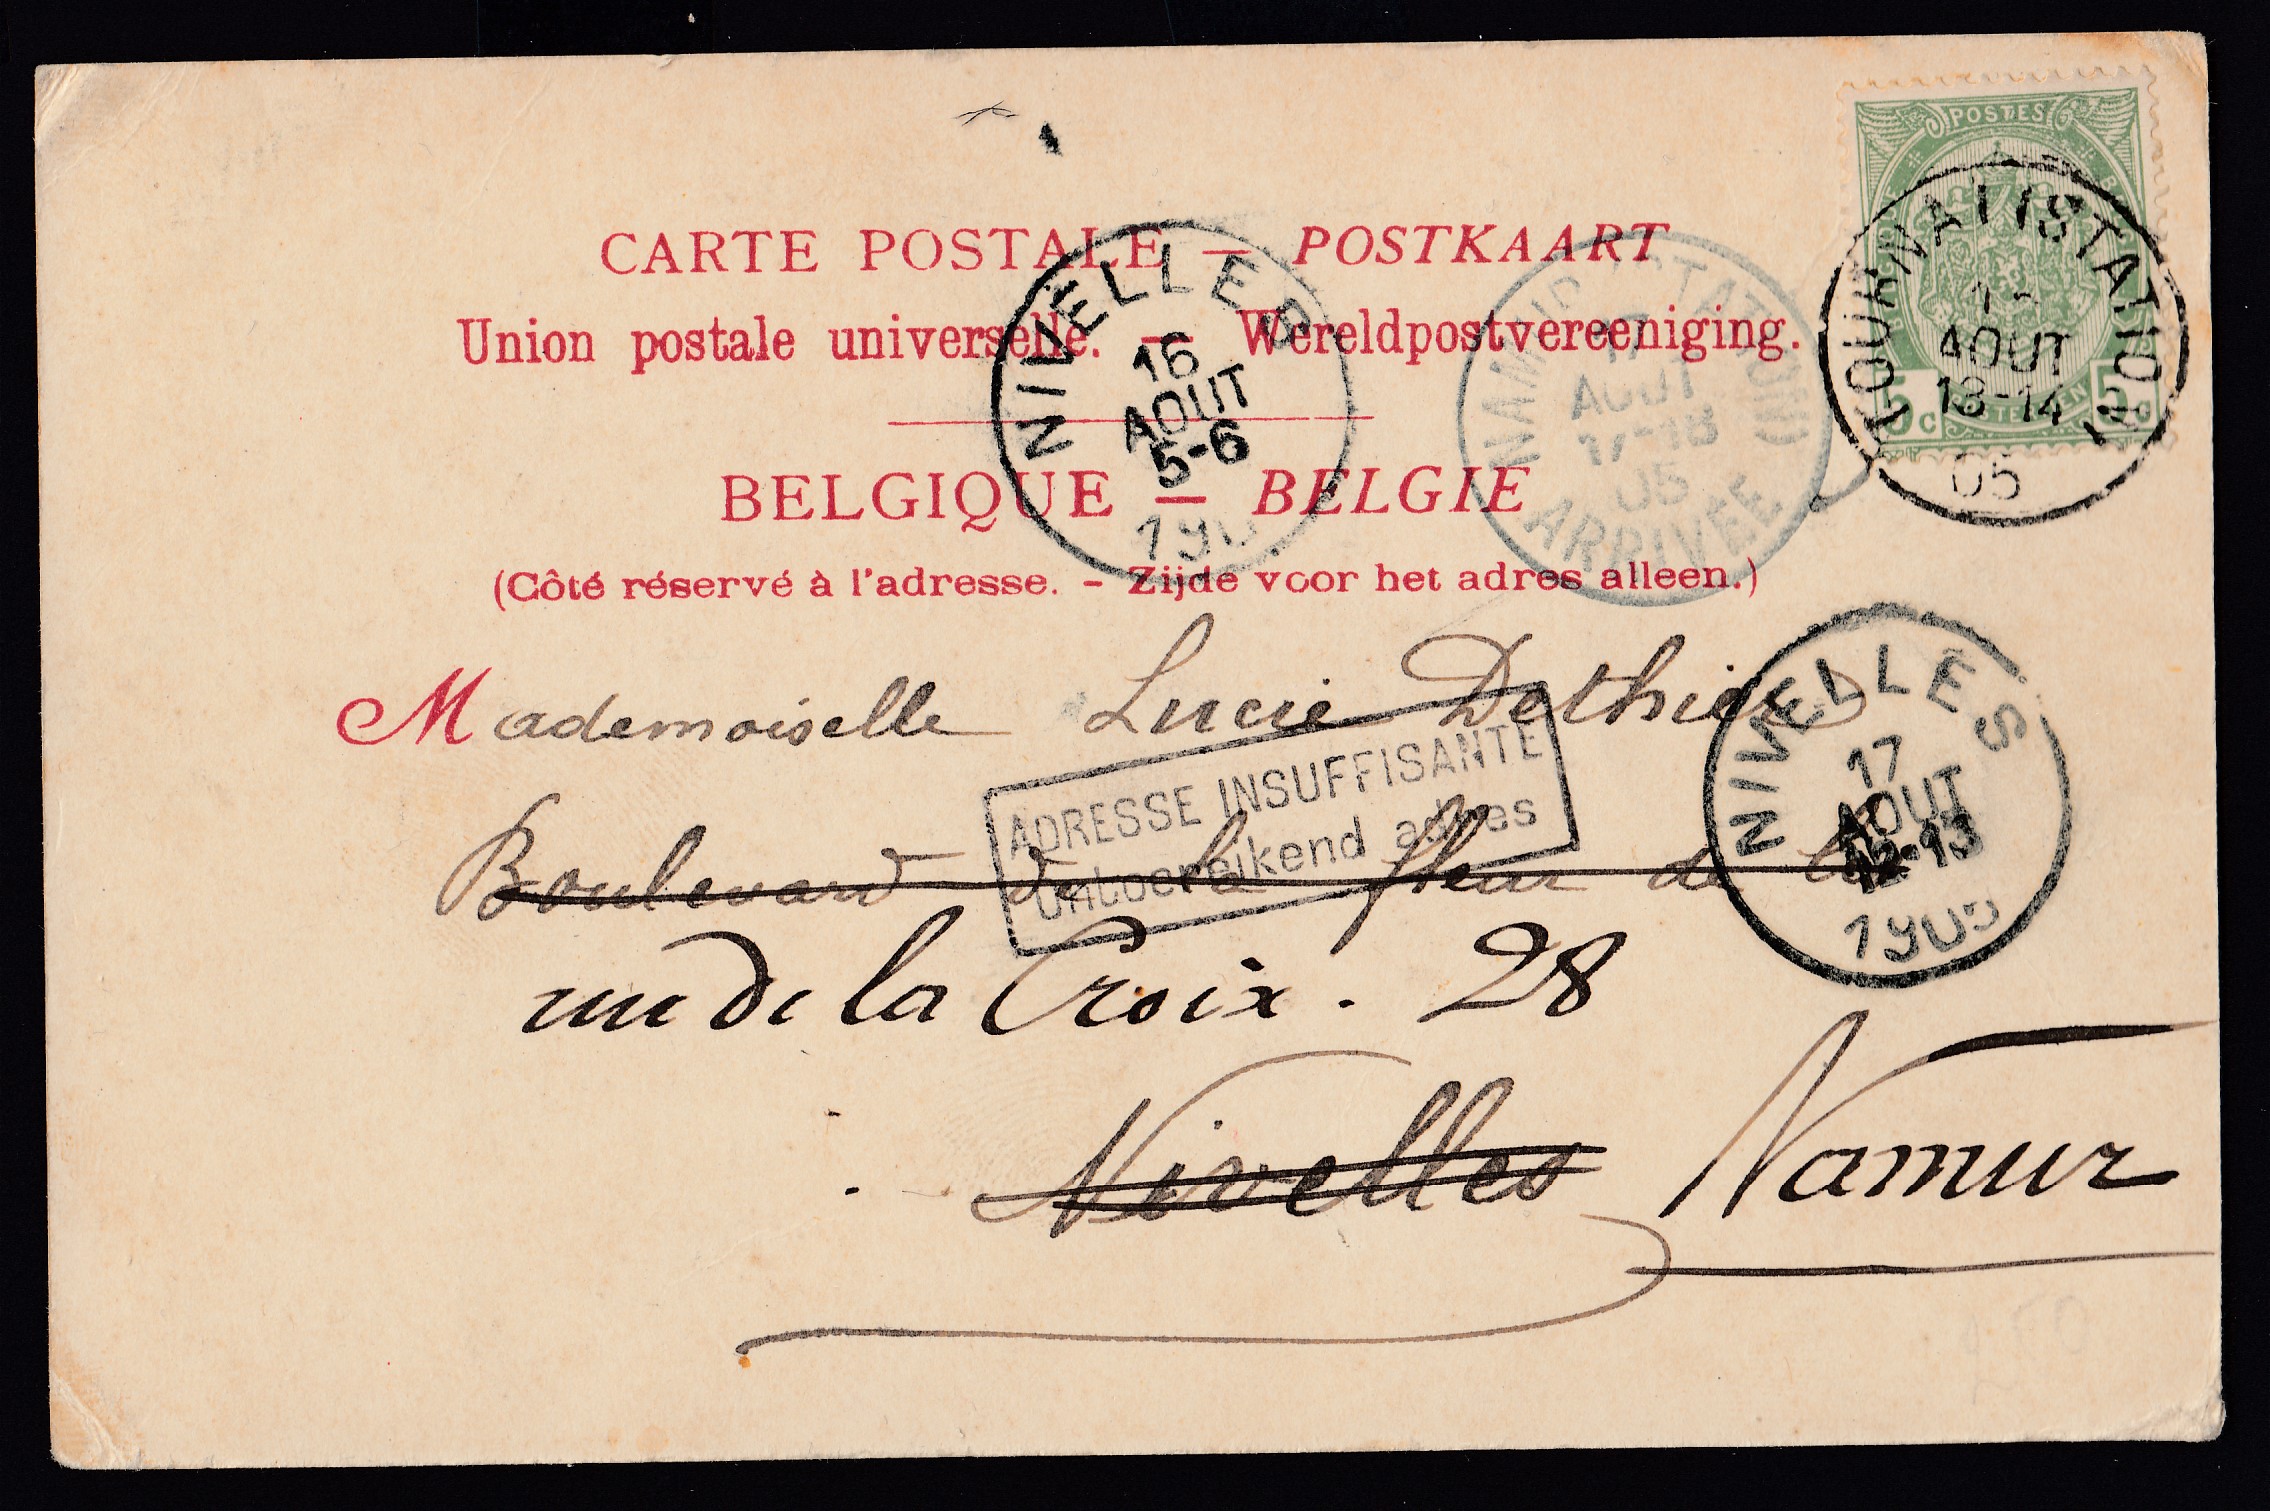 POSTES
CARTE POSTALE — POSTKAART
Union postale universelle. — Wereldpostvereeniging.
BELGIQUE — BELGIE
(Côté réservé à l'adresse. - Zijde voor het adres alleen.)
5 c POSTERIJEN 5 c
AOUT
13-14
05
NIVELLES
16
AOUT
5-6
NAMUR (STATION)
AOUT
17-18
05
ARRIVÉE
Mademoiselle Lucie Dethier
NIVELLES
17
AOUT
12-13
1905
ADRESSE INSUFFISANTE
Ontoereikend adres
Boulevard de la fleur de
rue de la Croix. 28
Nivelles Namur